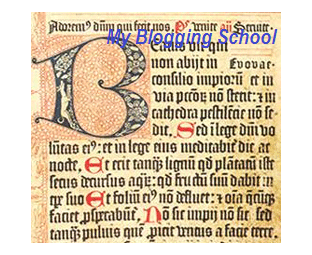 Adorem⁹ dñm qui fecit nos. Ps. venite añ Seruite.
My Blogging School
Beatus vir qui
non abijt in Evovae
consilio impiorū et in
via pcc̄oꝝ nō stetit: ⁊ in
cathedra pestilētie nō se
dit. Sed ī lege dn̄i vo
lūtas ei⁹: et in lege eius meditabit̄ die ac
nocte. Et erit tanqȝ lignū qd̄ plātatū iſt
secus decursus aqꝝ: qd̄ fructū suū dabit ī
tp̄e suo Et foliū ei⁹ nō defluet: ⁊ oīa qūcūqȝ
faciet psperabūt. Nō sic impij nō sic sed
tanqȝ puluis quē proicit ventus a facie terre.